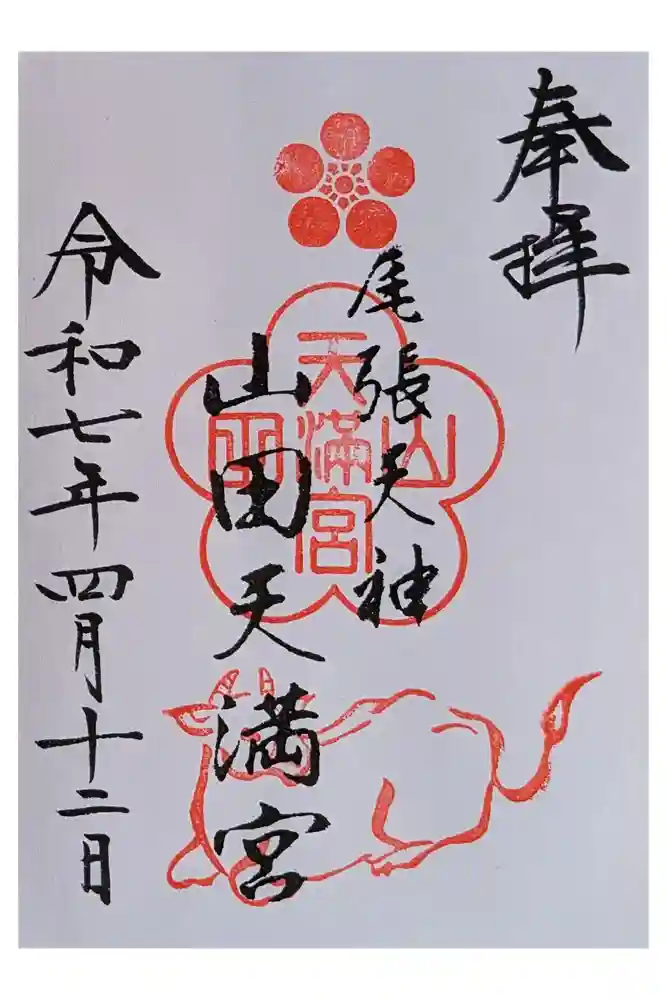 奉拝
尾張天神
山田天満宮
令和七年四月十二日
山田
天満宮